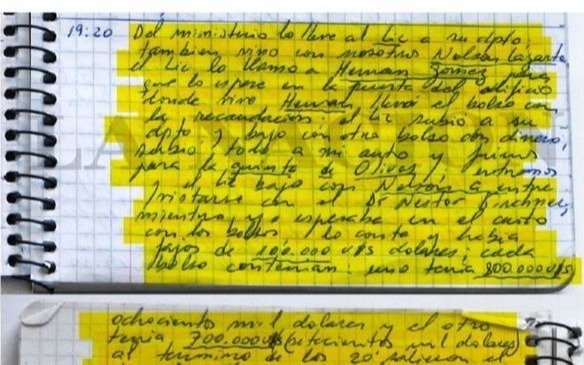 19:20 Del ministerio lo lleve al Lic a su dpto,
tambien vino con nosotros Nelson Lazarte,
el Lic lo llamo a Hernan Gomez para
que lo espere en la puerta del edificio
donde vive Hernan, llevó el bolso con
la recaudacion el Lic subio a su
dpto y bajo con otro bolso con dinero,
subio todo a mi auto y fuimos
para la quinta de Olivos, entramos
el Lic bajo con Nelson a entre
vistarse con el Dr Nestor
mientras yo esperaba en el auto
con los bolsos, lo conte y habia
fajos de 100.000 u$s dolares, cada
bolso contenian: uno tenia 800.000 u$s
ochocientos mil dolares y el otro
tenia 700.000 u$s (setecientos mil dolares)
al termino de los 20' salieron el
LA NACION